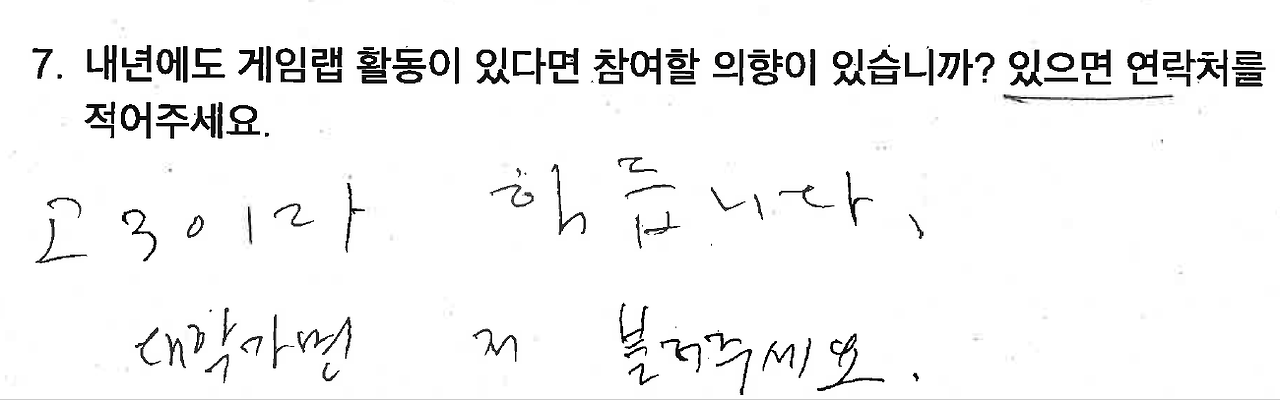 7. 내년에도 게임랩 활동이 있다면 참여할 의향이 있습니까? 있으면 연락처를
적어주세요.
고3이라 힘듭니다.
대학가면 저 불러주세요.